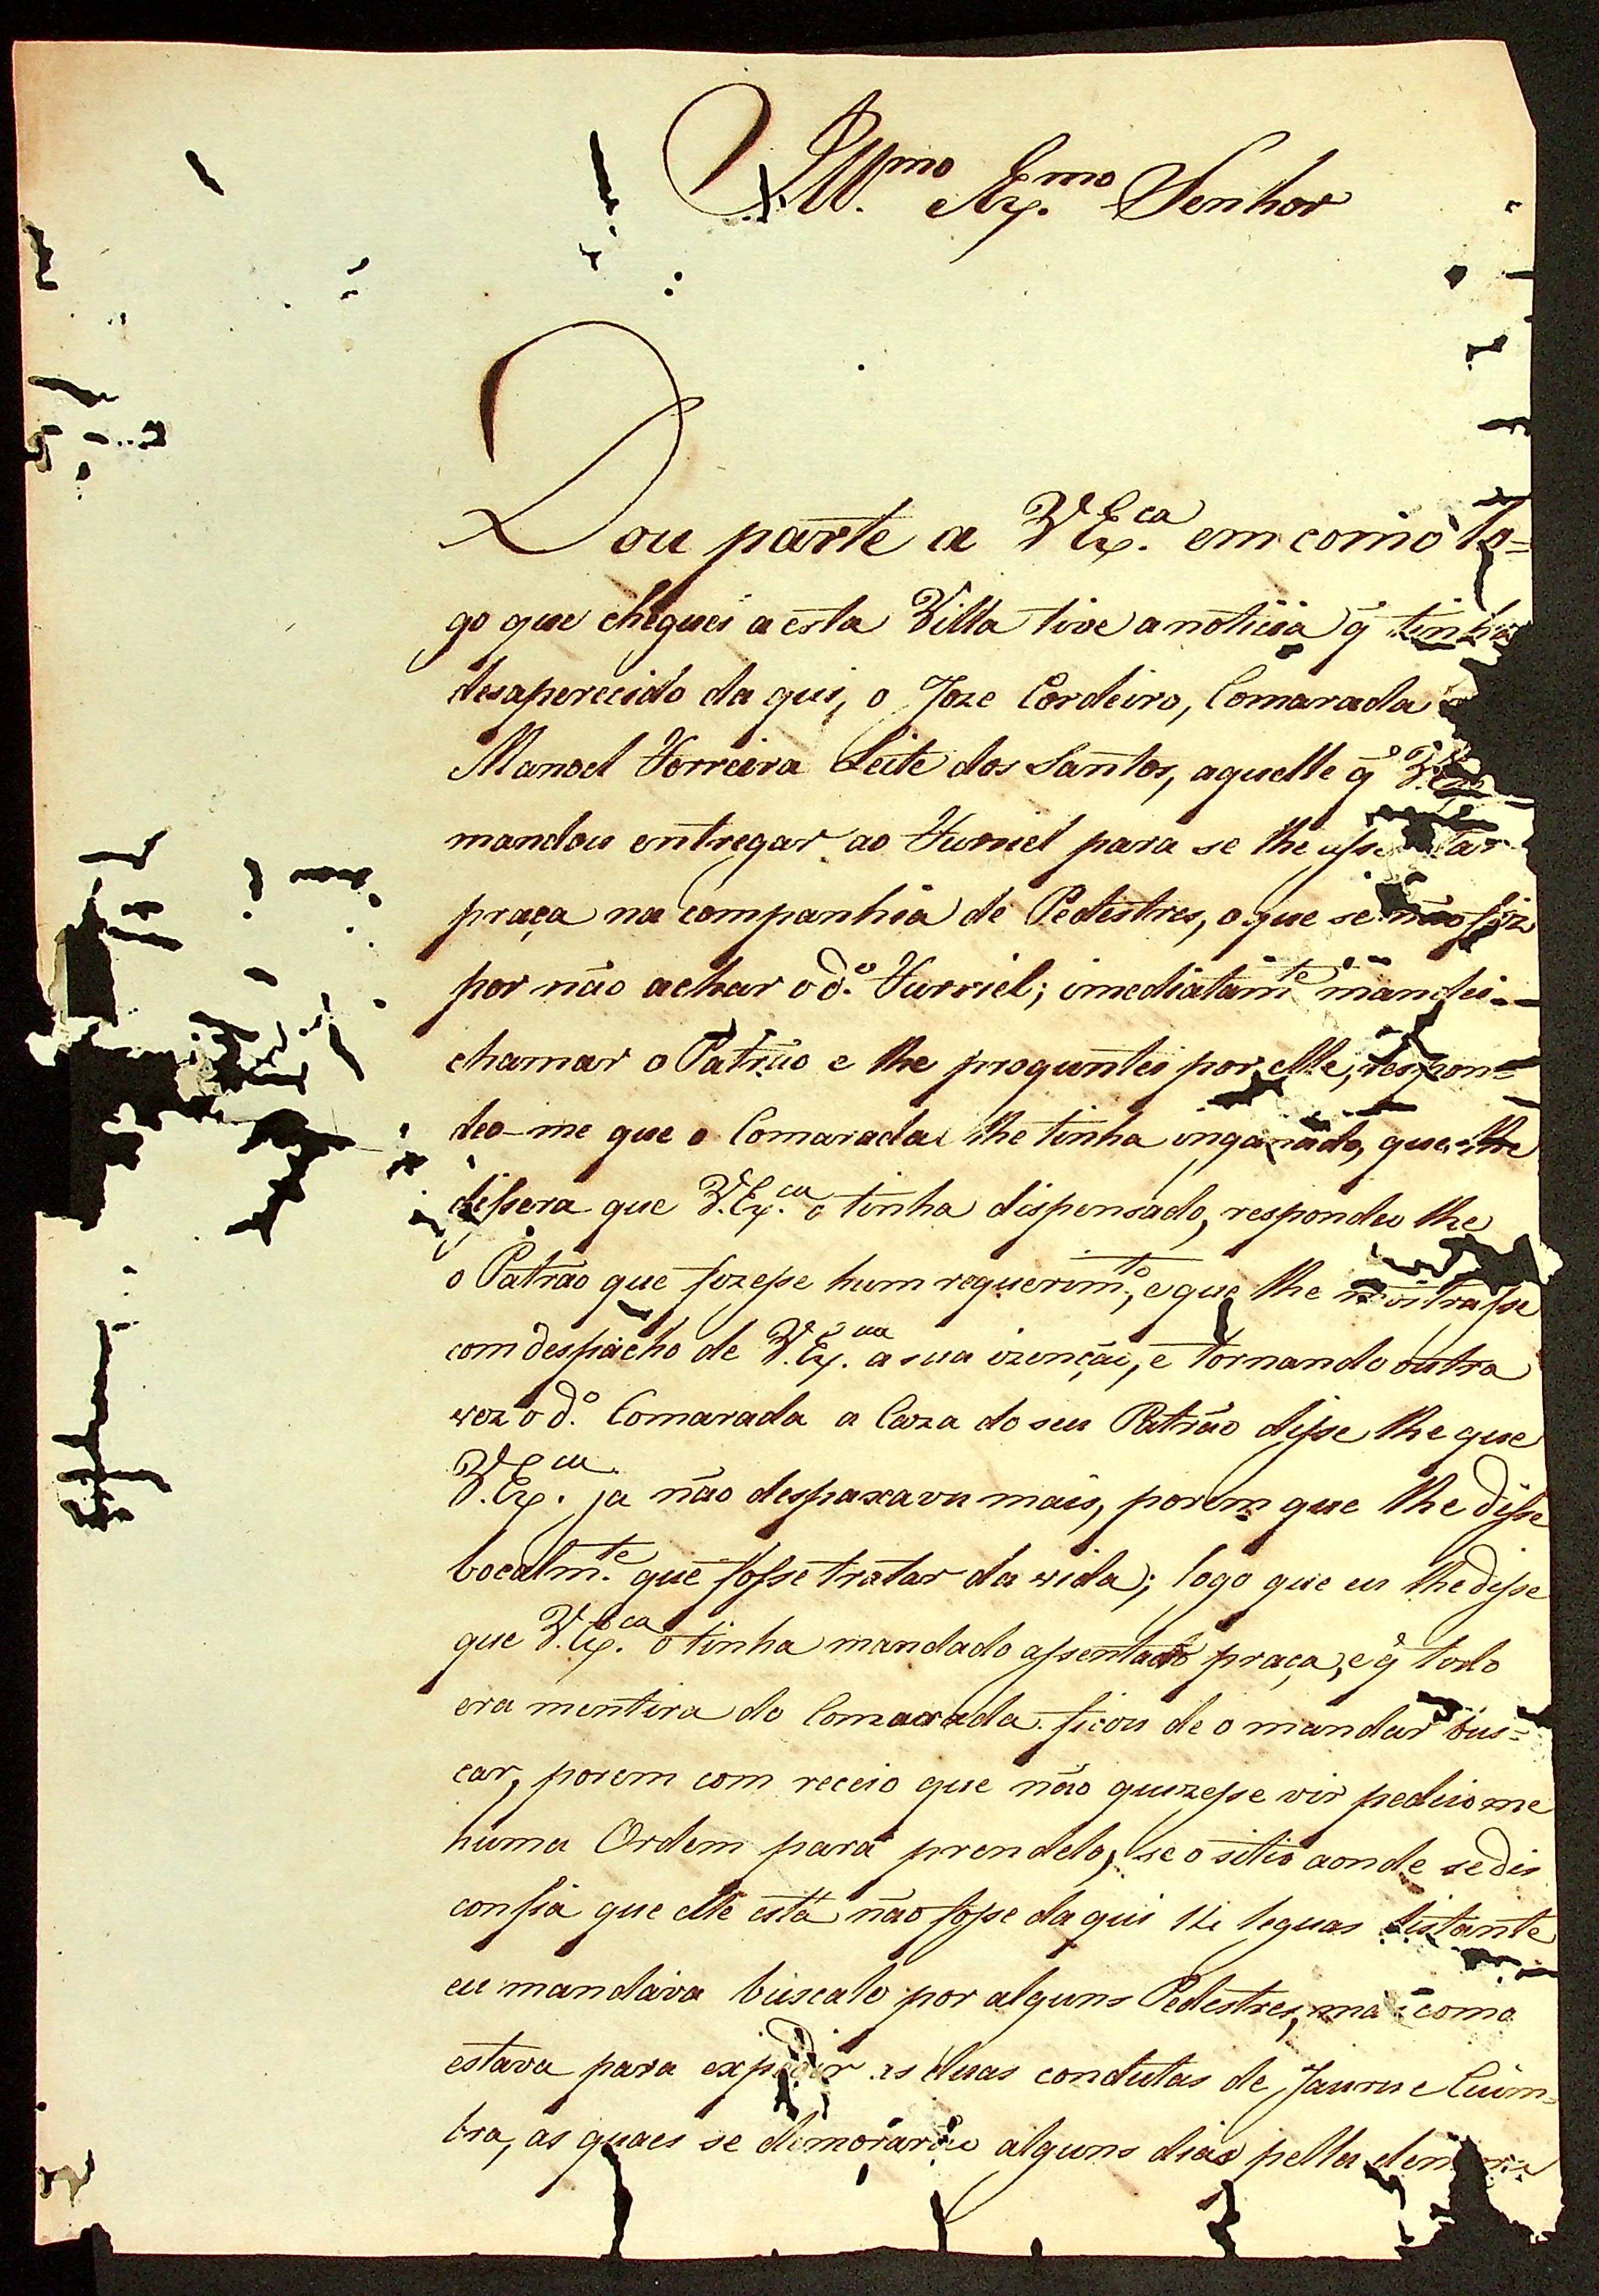 Ill.mo e Ex.mo Senhor
Dou parte a V Ex.ca em como lo=
go que cheguei a esta Villa tive a noticia q̃ tinha
desaperecido da qui, o Joze Cordeiro, Comarada
Manoel Ferreira Leite dos Santos, aquelle q̃ V. Ex.
mandou entregar ao Furriel para se lhe assentar
praça na companhia de Pedestres, o que se não fez
por não achar o d.o Furriel; imediatam.te mandei
chamar o Patrão e lhe proguntei por elle, respon=
deo-me que o Comarada lhe tinha inganado, que lhe
dissera que V. Ex.ca o tinha dispensado, respondeu lhe
o Patrão que fozesse hum requerim.to, e que lhe mostrasse
com despacho de V. Ex.ca a sua izenção, e tornando outra
vez o d.o Comarada a Caza do seu Patrão disse lhe que
V. Ex.ca ja não despaxava mais, porem que lhe disse
bocalm.te que fosse tratar da vida; logo que eu lhe disse
que V. Ex.ca o tinha mandado assentado praça, e q̃ todo
era mentira do Comarada ficou de o mandar bus=
car, porem com receio que não quizesse vir pedio me
huma Ordem para prendelo, se o sitio aonde se dis
confia que elle está não fosse da qui 14 leguas distante
eu mandava buscalo por alguns Pedestres, mas como
estava para expedir as duas condutas de Jauru e Coim=
bra, as quaes se demorarão alguns dias pella